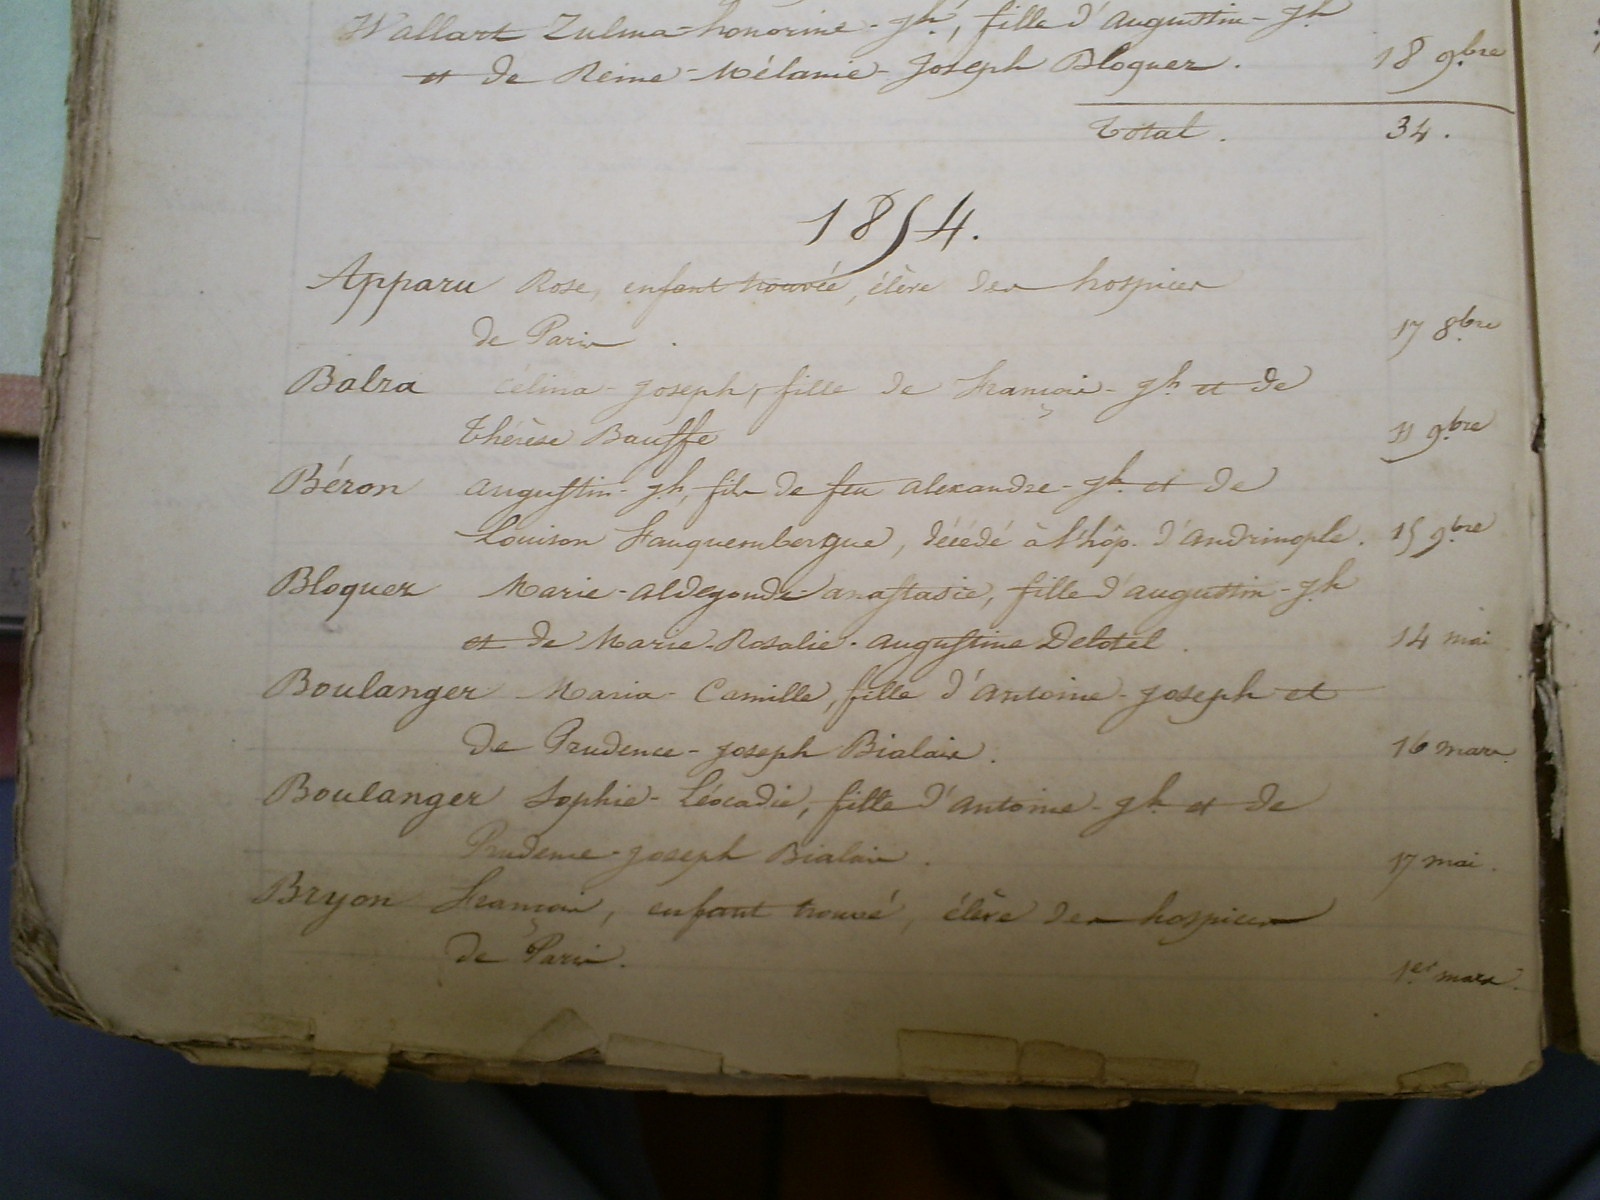 Wallart Zulma-honorine-jh, fille d'augustin-jh
et de Reine-Mélanie-Joseph Bloquez. 18 9bre
Total. 34.
1854.
Apparu Rose, enfant trouvée, élève des hospices
de Paris. 17 8bre
Balza Célina-joseph, fille de François-jh et de
Thérèse Bauffe 11 9bre
Béron augustin-jh, fils de feu alexandre-jh et de
Louison Fauquembergue, décédé à l'hôp. d'andrinople. 15 9bre
Bloquez Marie-aldegonde-anastasie, fille d'augustin-jh
et de Marie-Rosalie-augustine Delotel. 14 mai
Boulanger Maria-Camille, fille d'antoine-joseph et
de Prudence-joseph Bialais. 16 mars.
Boulanger Sophie-Léocadie, fille d'antoine-jh et de
Prudence-joseph Bialais. 17 mai.
Bryon François, enfant trouvé, élève des hospices
de Paris. 1er mars.